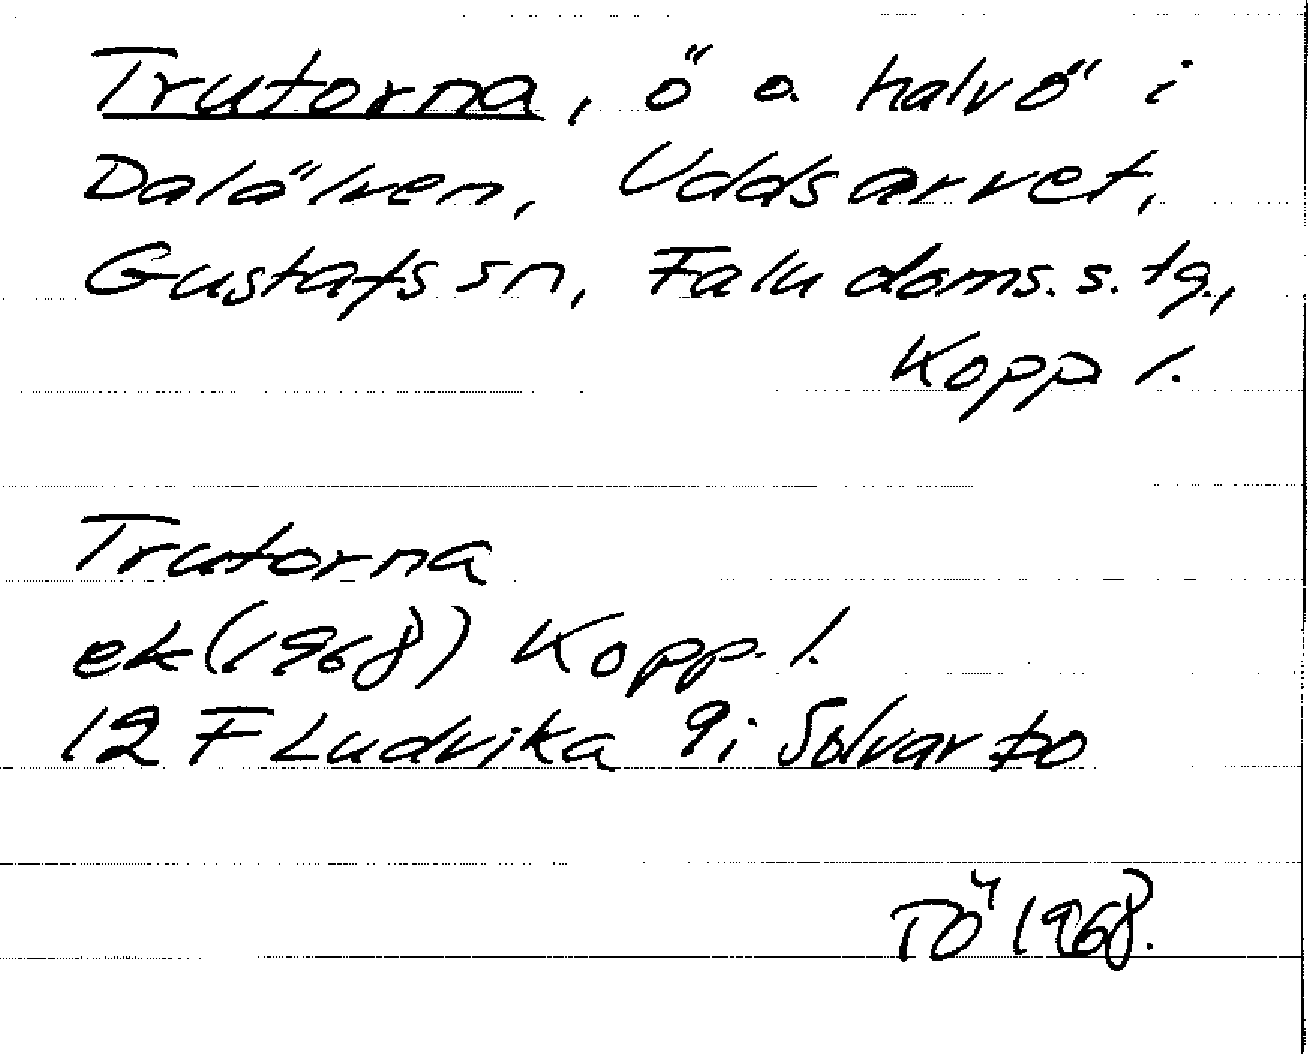 Trutorna, ö o. halvö i
Dalälven, Uddsarvet,
Gustafs sn, Falu doms. s. tg.,
Kopp l.
Trutorna
ek (1968) Kopp. l.
12 F Ludvika 9i Solvarbo
TÖ 1968.